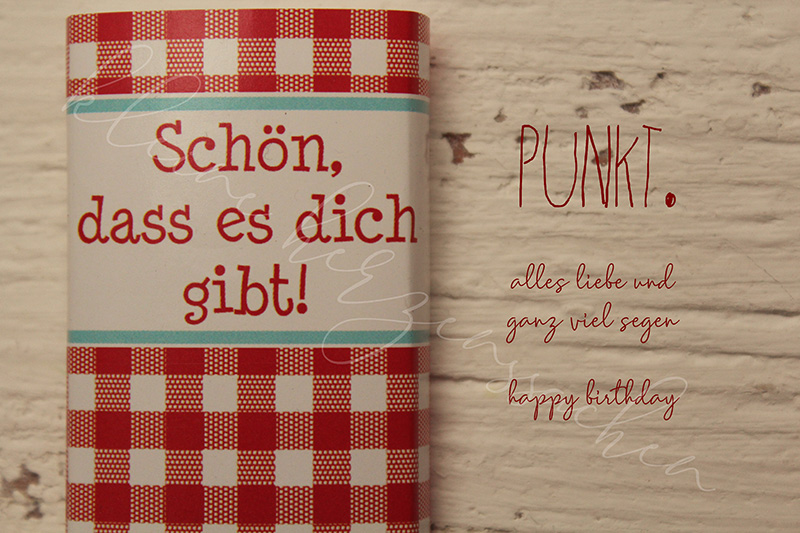 Schön,
dass es dich
gibt!
PUNKT.
alles liebe und
ganz viel segen
happy birthday